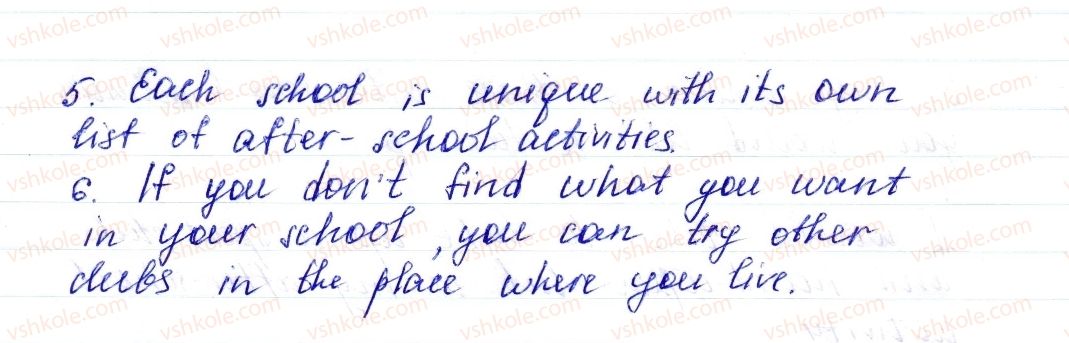 5. Each school is unique with its own
list of after-school activities.
6. If you don't find what you want
in your school, you can try other
clubs in the place where you live.